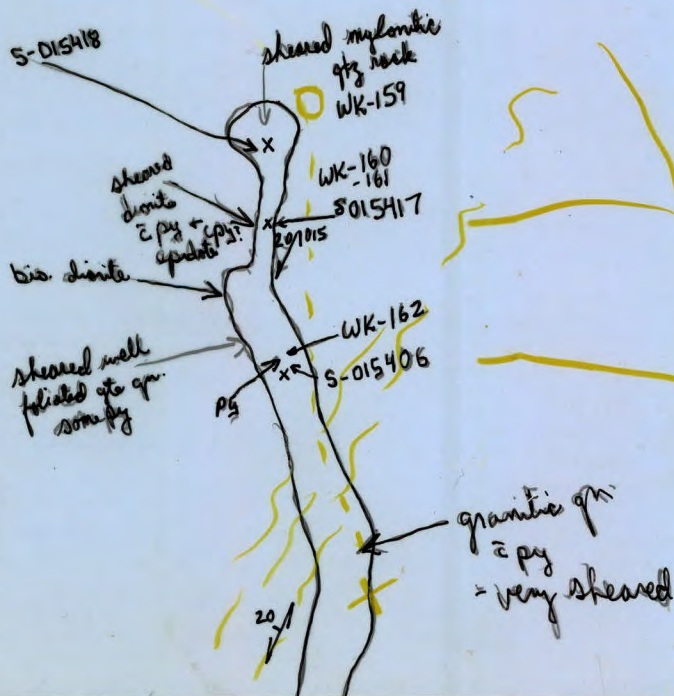 S-015418
sheared mylonitic
qtz rock
WK-159
WK-160
-161
S015417
sheared
diorite
c̄ py + cpy?
epidote
20/015
bio. diorite
WK-162
S-015406
sheared well
foliated qtz gn.
some py
py
granitic gn
c̄ py
- very sheared
20